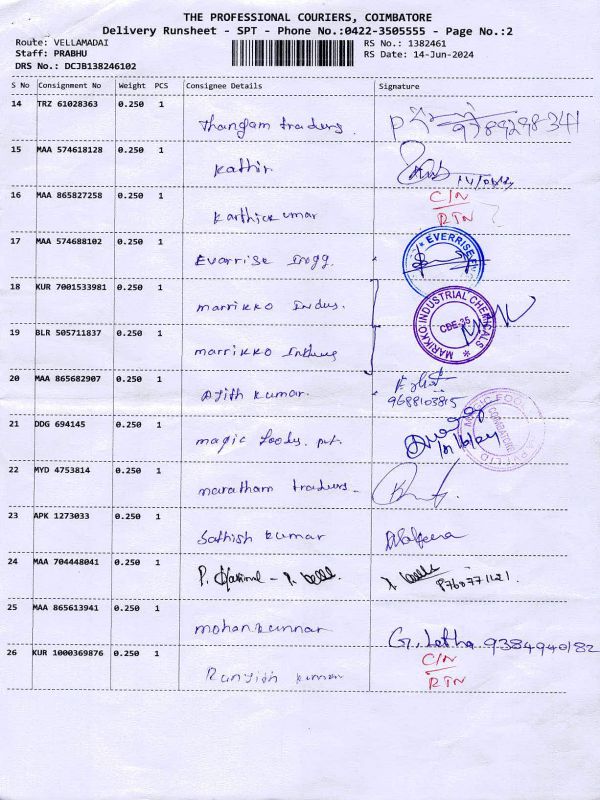 THE PROFESSIONAL COURIERS, COIMBATORE
Delivery Runsheet - SPT - Phone No.:0422-3505555 - Page No.:2
Route: VELLAMADAI
RS No.: 1382461
Staff: PRABHU
RS Date: 14-Jun-2024
DRS No.: DCJB138246102
S No Consignment No Weight PCS Consignee Details Signature
14 TRZ 61028363 0.250 1
Thangam traders
9789298341
15 MAA 574618128 0.250 1
Kathir
16 MAA 865827258 0.250 1
Karthickumar
C/N
RTN
17 MAA 574688102 0.250 1
Evarrise Engg.
EVERRISE
18 KUR 7001533981 0.250 1
marrikko Indus.
MARIKKO INDUSTRIAL CHEMICALS
CBE-35
19 BLR 505711837 0.250 1
marrikko
20 MAA 865682907 0.250 1
Ajith kumar.
9688103815
21 DDG 694145 0.250 1
magic foods. pvt.
MAGIC FOO
COIMBATORE
22 MYD 4753814 0.250 1
maratham traders
23 APK 1273033 0.250 1
Sathish kumar
24 MAA 704448041 0.250 1
25 MAA 865613941 0.250 1
mohankumar
G. Latha 9384940182
26 KUR 1000369876 0.250 1
Ranjith kumar
C/N
RTN